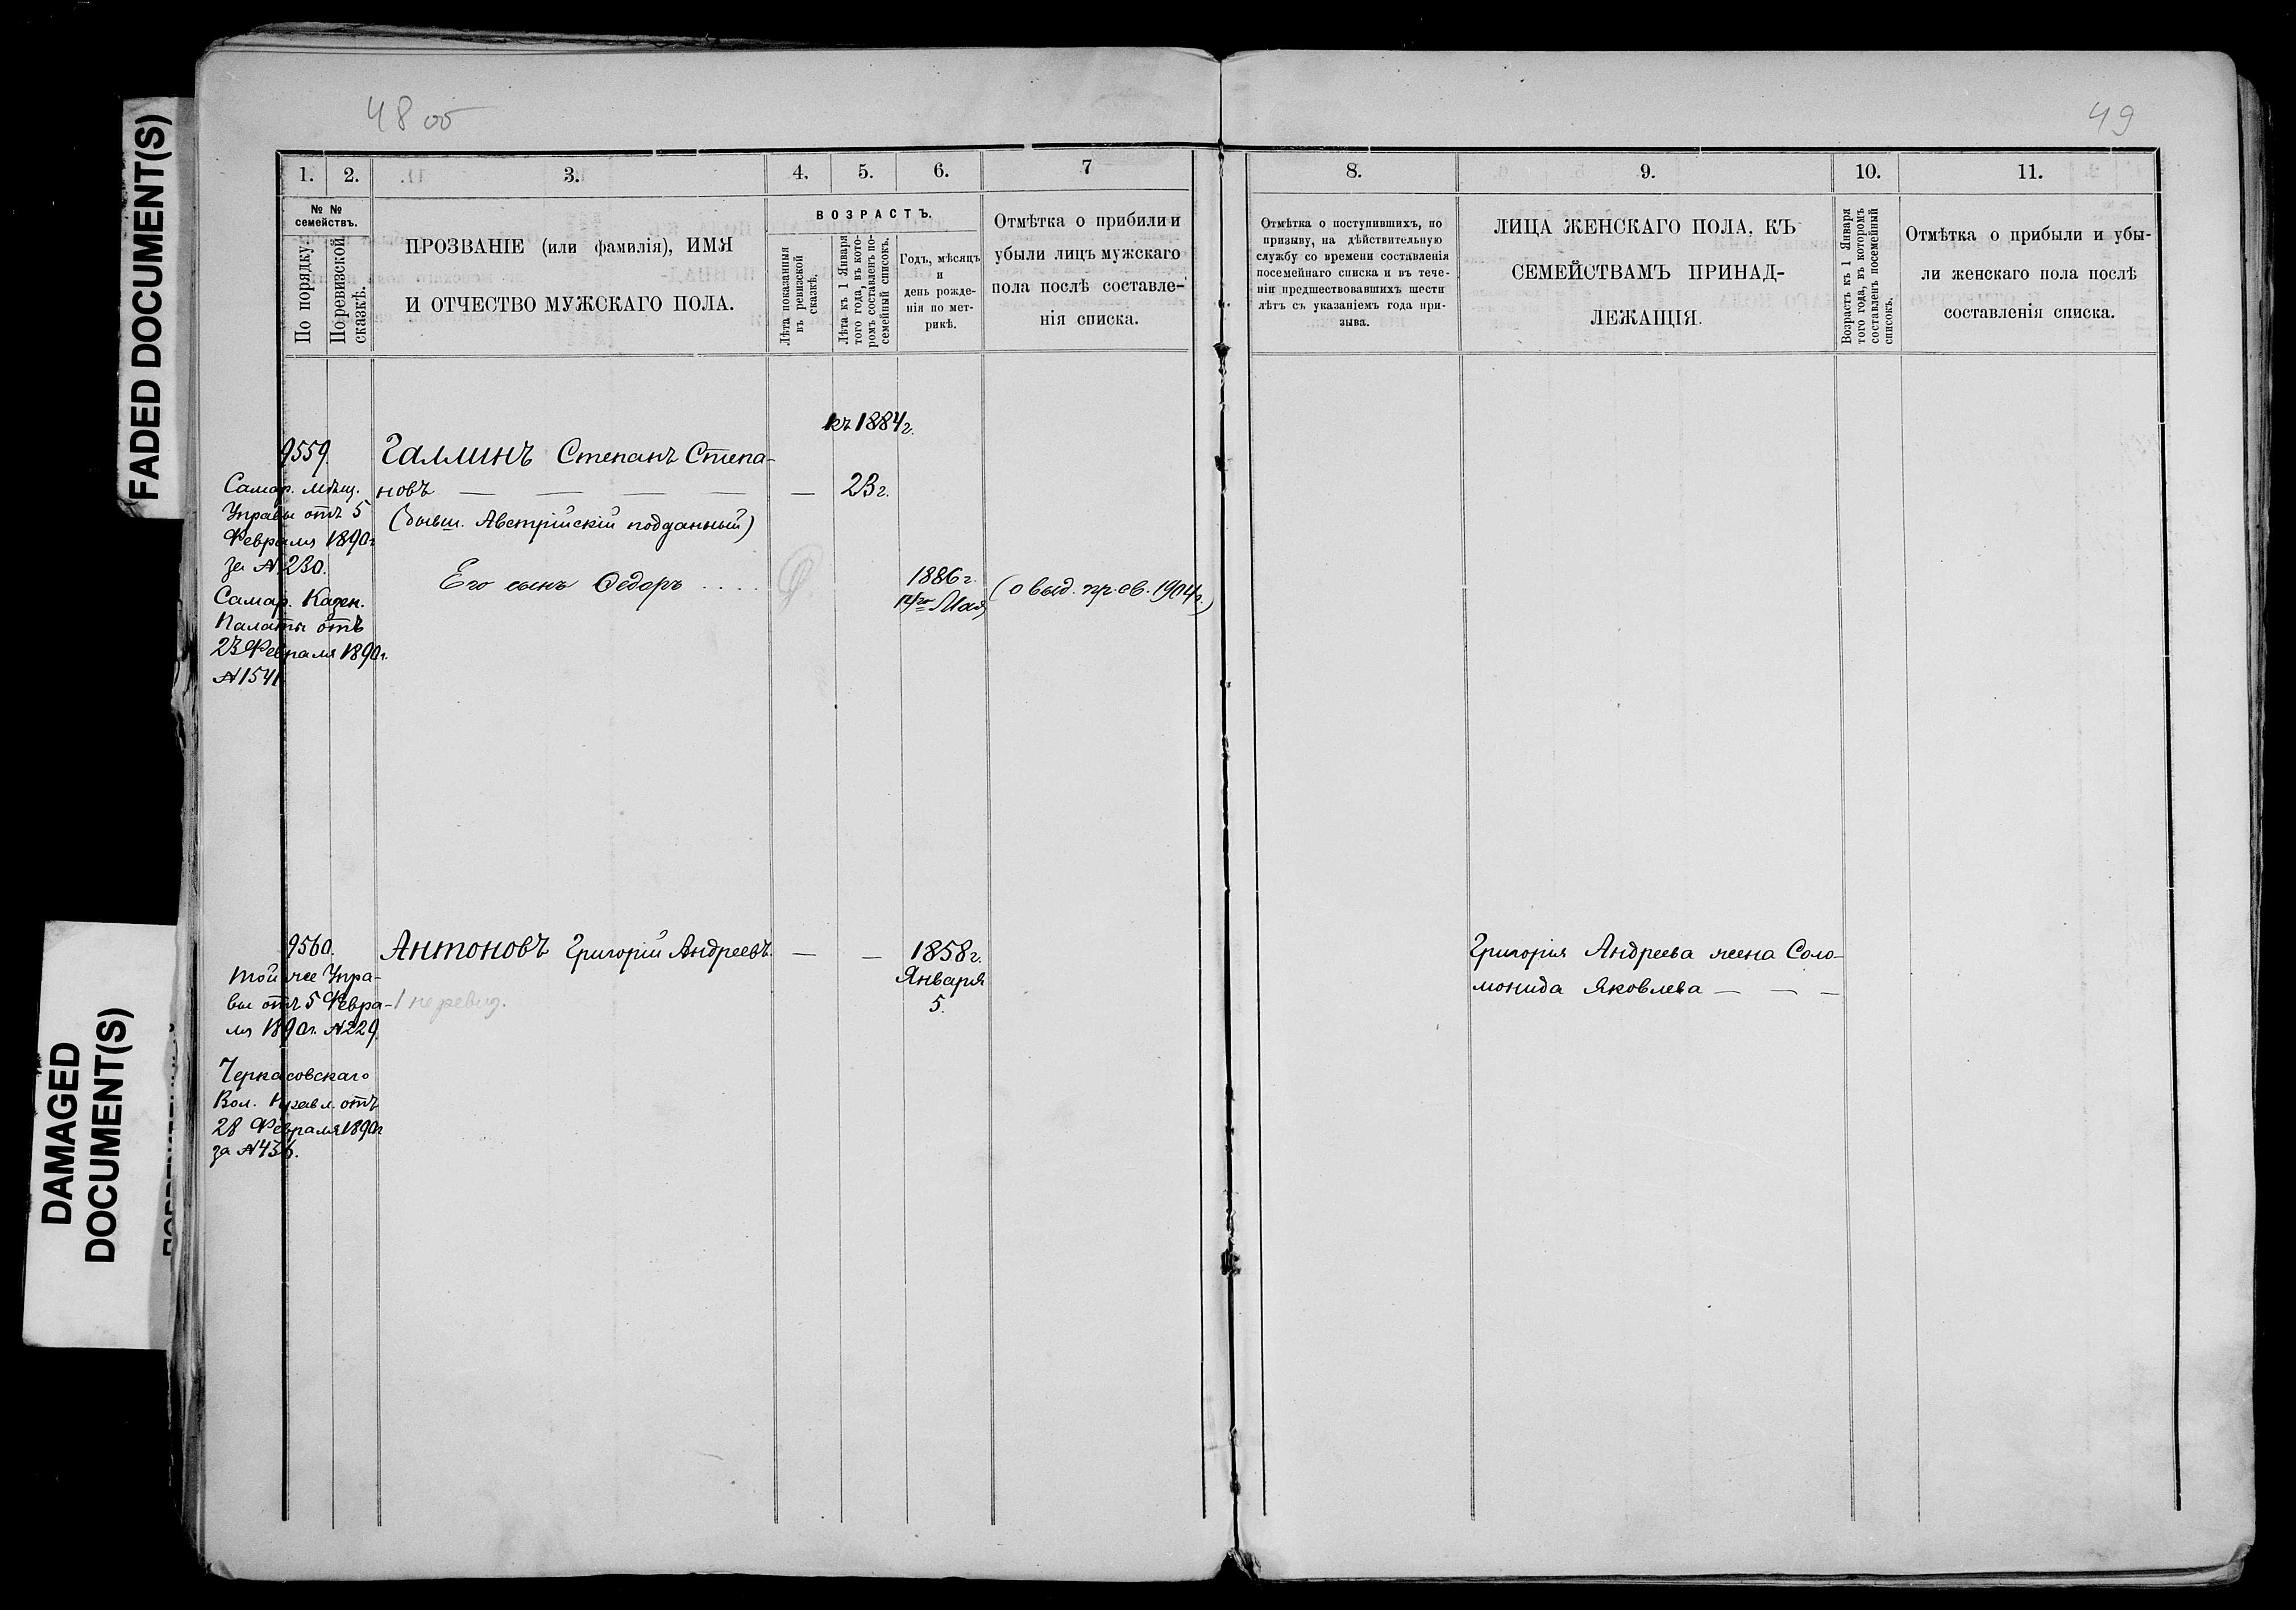 FADED DOCUMENT(S)
DAMAGED
DOCUMENT(S)
48 об
49
1.
2.
3.
4.
5.
6.
7
8.
9.
10.
11.
№ №
семействъ.
По порядку.
По ревизской
сказкѣ.
ПРОЗВАНІЕ (или фамилія), ИМЯ
И ОТЧЕСТВО МУЖСКАГО ПОЛА.
ВОЗРАСТЪ.
Лѣта показанныя
въ ревизской
сказкѣ.
Лѣта къ 1 Января
того года, въ кото-
ромъ составленъ по-
семейный списокъ.
Годъ, мѣсяцъ
и
день рожде-
нія по мет-
рикѣ.
Отмѣтка о прибыли и
убыли лицъ мужскаго
пола послѣ составле-
нія списка.
Отмѣтка о поступившихъ, по
призыву, на дѣйствительную
службу со времени составленія
посемейнаго списка и въ тече-
ніи предшествовавшихъ шести
лѣтъ съ указаніемъ года при-
зыва.
ЛИЦА ЖЕНСКАГО ПОЛА, КЪ
СЕМЕЙСТВАМЪ ПРИНАД-
ЛЕЖАЩІЯ.
Возрастъ къ 1 Января
того года, въ которомъ
составленъ посемейный
списокъ.
Отмѣтка о прибыли и убы-
ли женскаго пола послѣ
составленія списка.
къ 1884 г.
9559.
Галлинъ Степанъ Степа-
новъ — — — — — 23 г.
(бывш. Австрійскій подданный)
Самар. Мѣщ.
Управы отъ 5
Февраля 1890 г
за № 230.
Его сынъ Федоръ . . . .
1886 г.
Мая
(о выд. пр. св. 1904 г.)
Самар. Казен.
Палаты отъ
23 Февраля 1890 г.
№ 1541
9560.
Антоновъ Григорій Андреевъ. — — 1858 г.
Января
5.
Той же Упра-
вы отъ 5 Февра-
ля 1890 г. № 229.
1 не ревиз.
Черкасовскаго
Вол. Правл. отъ
28 Февраля 1890 г
за № 436.
Григорія Андреева жена Соло-
монида Яковлева — — —